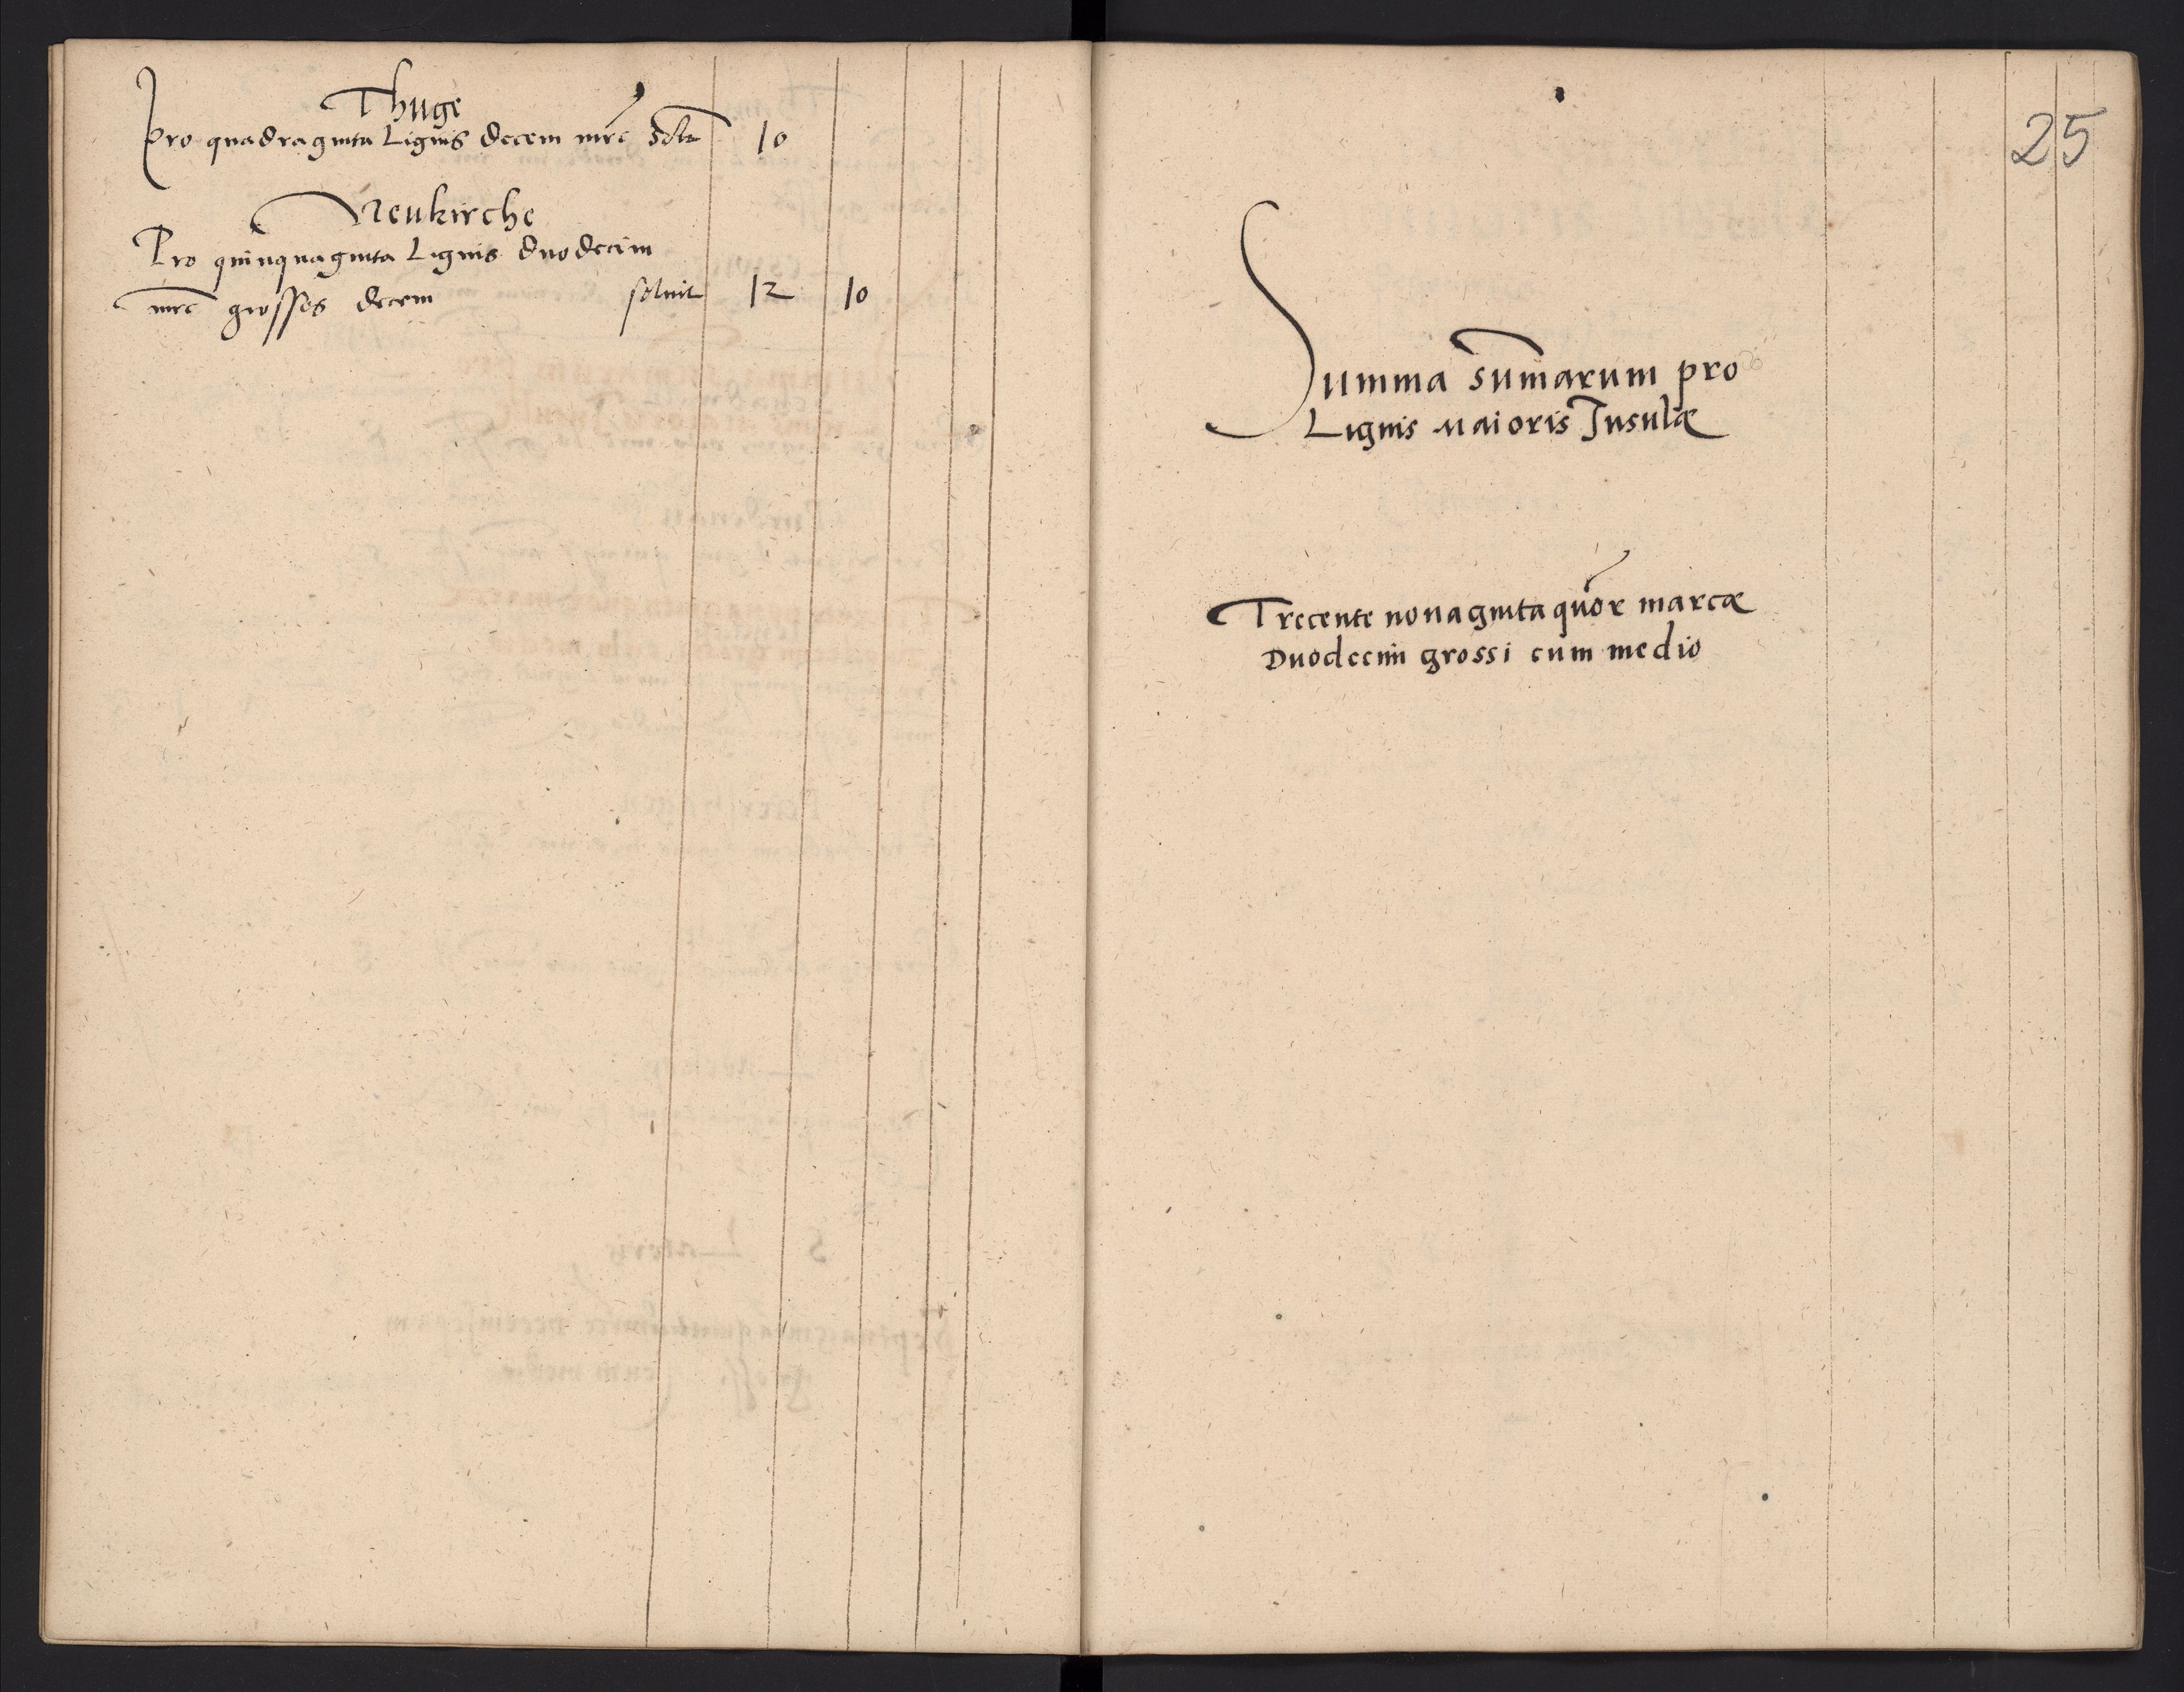 Thuge
Pro quadraginta Lignis decem mrc solt 10
Neukirche
Pro quinquaginta Lignis duodecim
mrc grosses decem soluit 12 10
25
Summa sumarum pro
Lignis Maioris Insulæ
Trecente nonaginta quor marcæ
Duodecim grossi cum medio